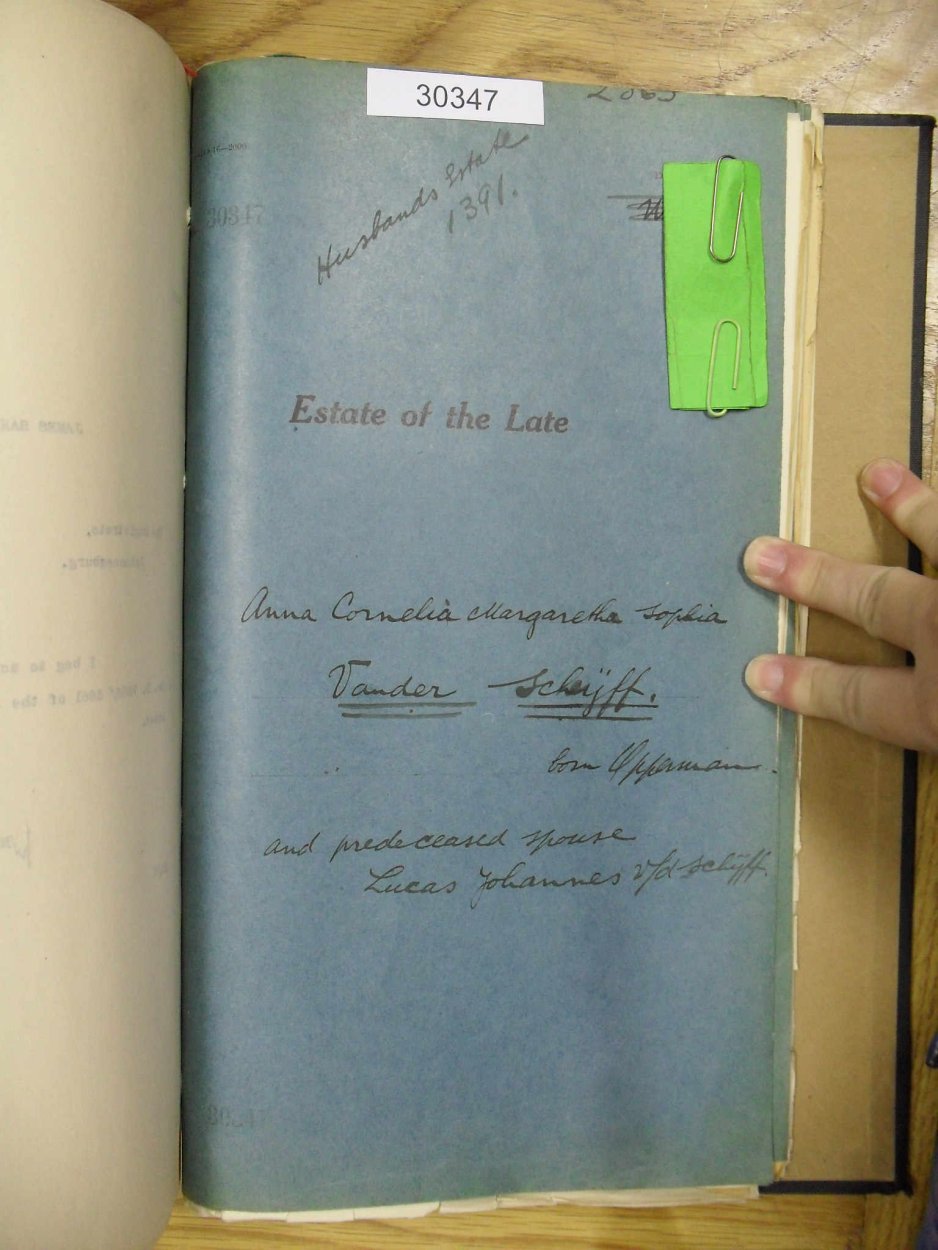 30347
2863
30347
Husbands Estate
1391.
Estate of the Late
Anna Cornelia Margaretha Sophia
Vander Scheijff.
born Opperman.
and predeceased spouse
Lucas Johannes v/d Scheijff.